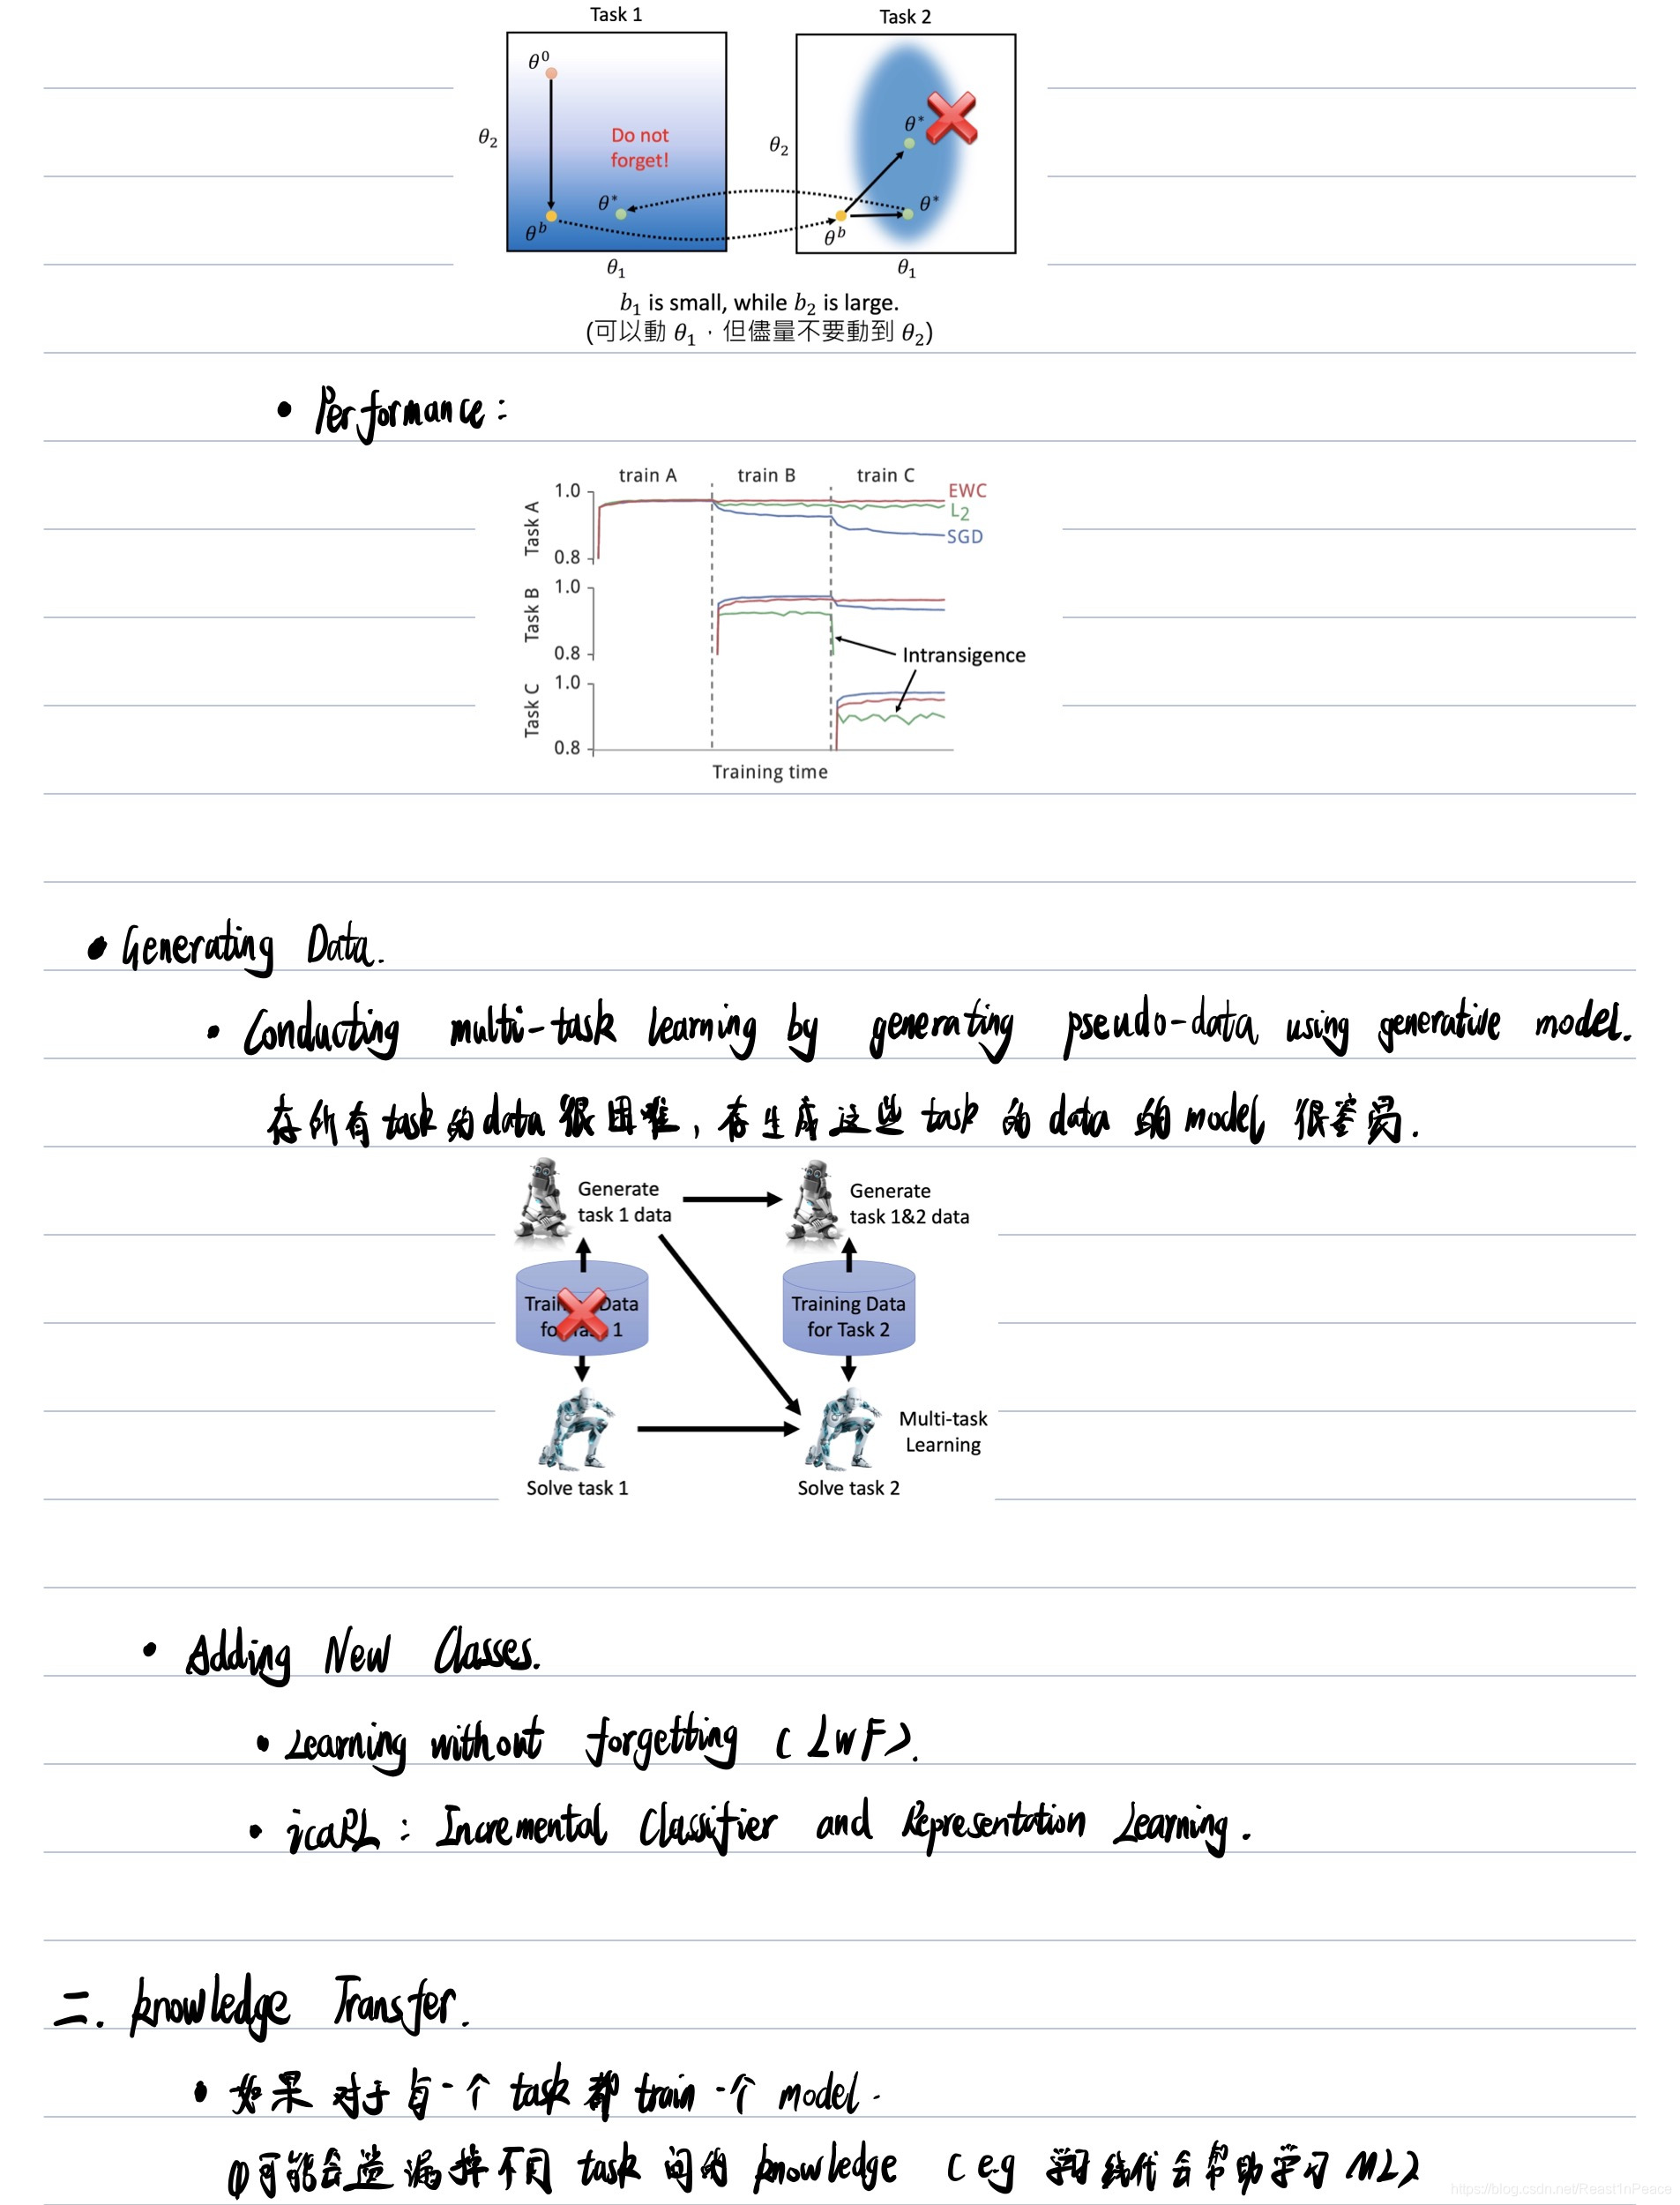 Task 1
Task 2
θ⁰
θ₂
Do not
forget!
θ*
θᵇ
θ₁
θ₂
θ*
θ*
θᵇ
θ₁
b₁ is small, while b₂ is large.
(可以動 θ₁,但儘量不要動到 θ₂)
• Performance:
train A train B train C
Task A
1.0
0.8
EWC
L2
SGD
Task B
1.0
0.8
Intransigence
Task C
1.0
0.8
Training time
• Generating Data.
• Conducting multi-task learning by generating pseudo-data using generative model.
存所有task的data很困难,存生成这些task的data的model很容易.
Generate
task 1 data
Generate
task 1&2 data
Training Data
for Task 1
Training Data
for Task 2
Multi-task
Learning
Solve task 1
Solve task 2
• Adding New Classes.
• Learning without forgetting (LwF).
• icaRL: Incremental Classifier and Representation Learning.
二. knowledge Transfer.
• 如果对于每一个task都train一个model.
①可能会遗漏掉不同task间的knowledge (e.g 学好线代会帮助学习ML)
https://blog.csdn.net/Reast1nPeace